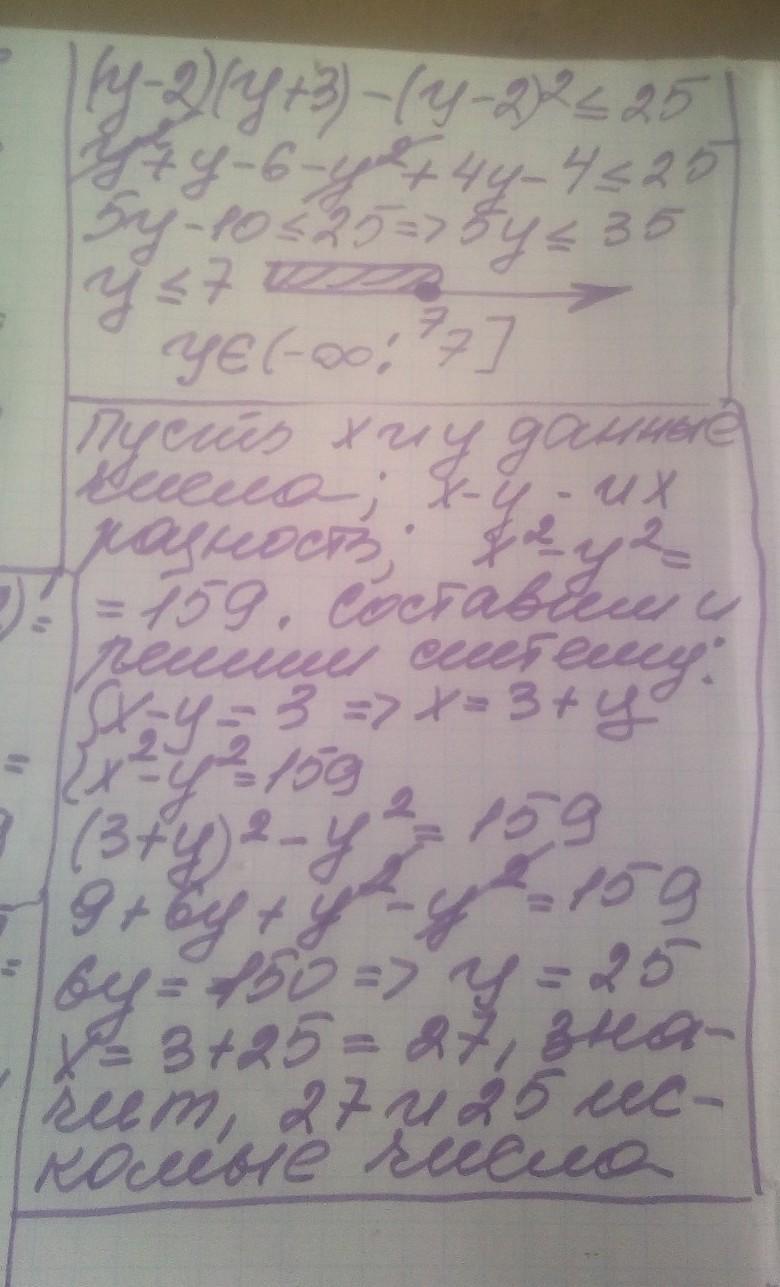 (y-2)(y+3)-(y-2)²≤25
y²+y-6-y²+4y-4≤25
5y-10≤25=>5y≤35
y≤7
7
y∈(-∞; 7]
Пусть x и y данные
числа; x-y - их
разность; x²-y²=
=159. Составим и
решим систему:
{x-y=3 => x=3+y
{x²-y²=159
(3+y)²-y²=159
9+6y+y²-y²=159
6y=150=> y=25
x=3+25=27, зна-
чит, 27 и 25 ис-
комые числа